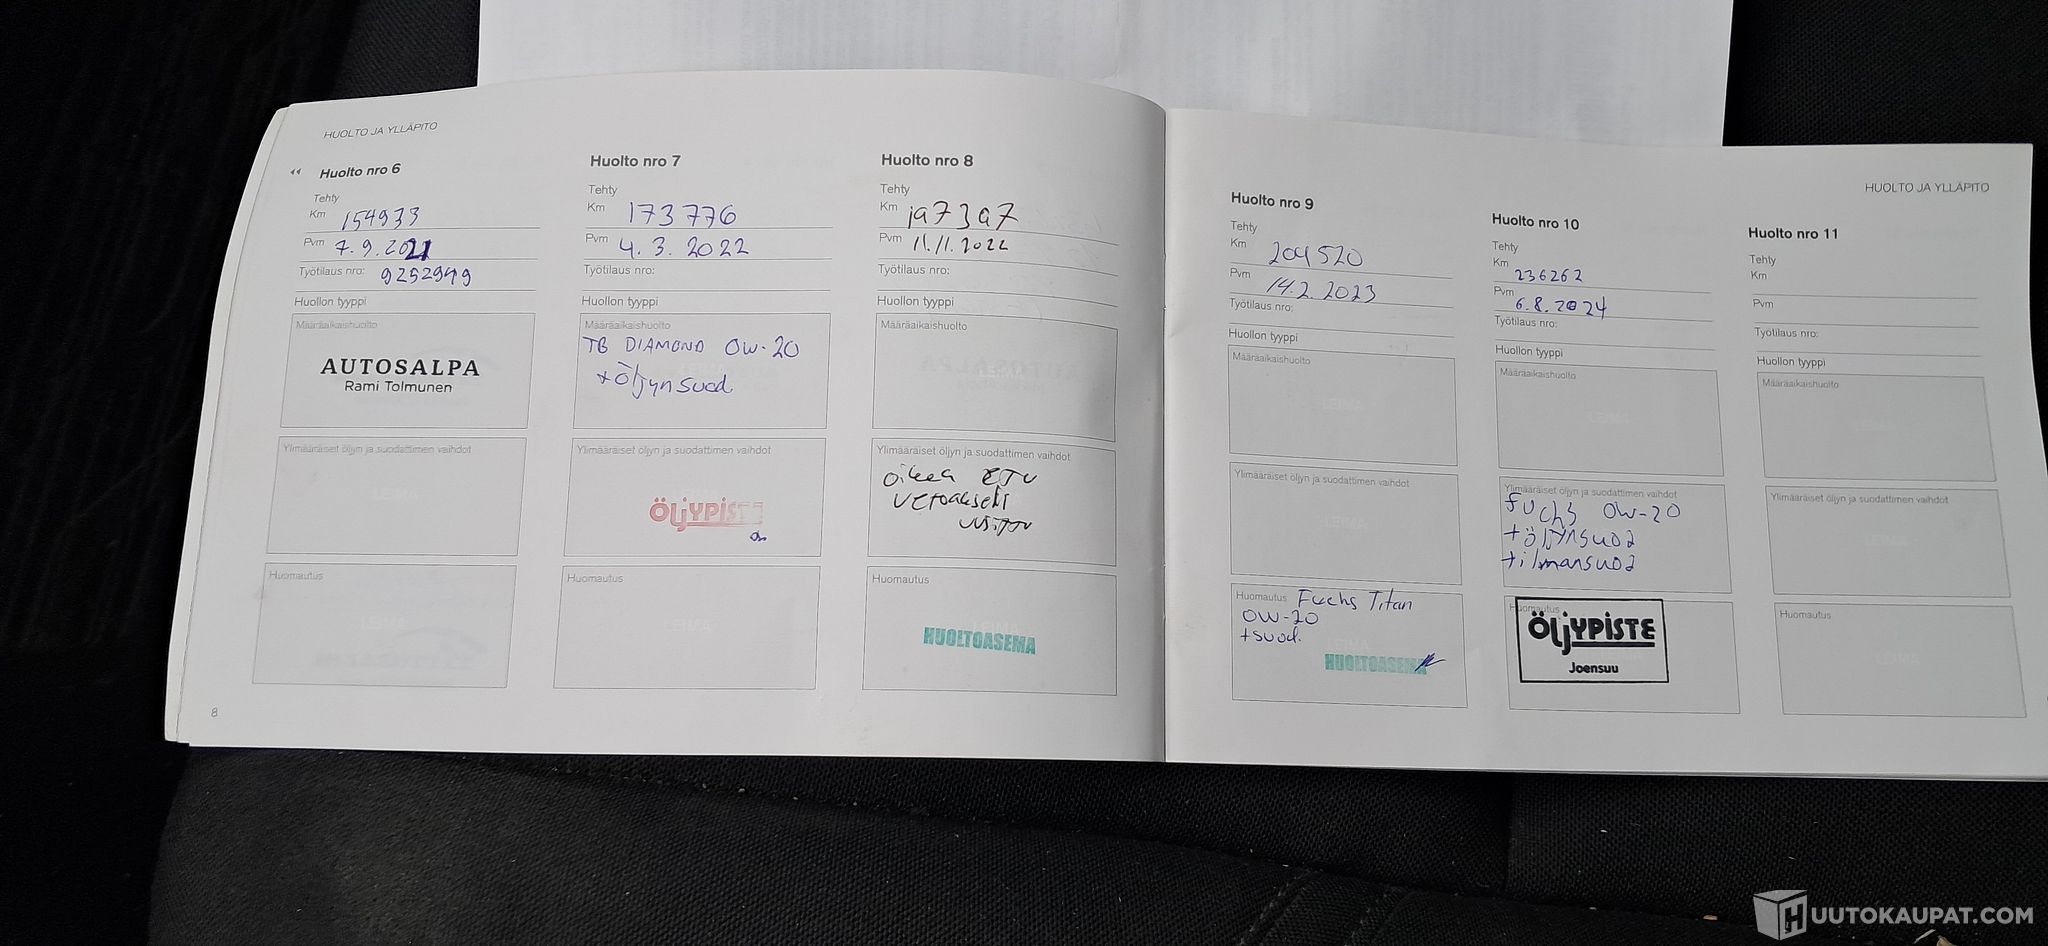 HUOLTO JA YLLÄPITO
Huolto nro 6
Tehty
Km 154933
Pvm 7.9.2021
Työtilaus nro: 9252949
Huollon tyyppi
Määräaikaishuolto
AUTOSALPA
Rami Tolmunen
Ylimääräiset öljyn ja suodattimen vaihdot
LEIMA
Huomautus
LEIMA
8
Huolto nro 7
Tehty
Km 173776
Pvm 4.3.2022
Työtilaus nro:
Huollon tyyppi
Määräaikaishuolto
TB DIAMOND 0W-20
+öljynsuod
Ylimääräiset öljyn ja suodattimen vaihdot
ÖLJYPISTE
Huomautus
LEIMA
Huolto nro 8
Tehty
Km 197397
Pvm 11.11.2022
Työtilaus nro:
Huollon tyyppi
Määräaikaishuolto
Ylimääräiset öljyn ja suodattimen vaihdot
Oikea ETU
VETOakseli
UUSITTU
Huomautus
LEIMA
HUOLTOASEMA
HUOLTO JA YLLÄPITO
Huolto nro 9
Tehty
Km 204520
Pvm 14.2.2023
Työtilaus nro:
Huollon tyyppi
Määräaikaishuolto
LEIMA
Ylimääräiset öljyn ja suodattimen vaihdot
LEIMA
Huomautus Fuchs Titan
0W-20
+suod.
LEIMA
HUOLTOASEMA
Huolto nro 10
Tehty
Km 236262
Pvm 6.8.2024
Työtilaus nro:
Huollon tyyppi
Määräaikaishuolto
LEIMA
Ylimääräiset öljyn ja suodattimen vaihdot
Fuchs 0W-20
+öljynsuod
+ilmansuod
Huomautus
ÖLJYPISTE
Joensuu
Huolto nro 11
Tehty
Km
Pvm
Työtilaus nro:
Huollon tyyppi
Määräaikaishuolto
LEIMA
Ylimääräiset öljyn ja suodattimen vaihdot
LEIMA
Huomautus
LEIMA
HUUTOKAUPAT.COM